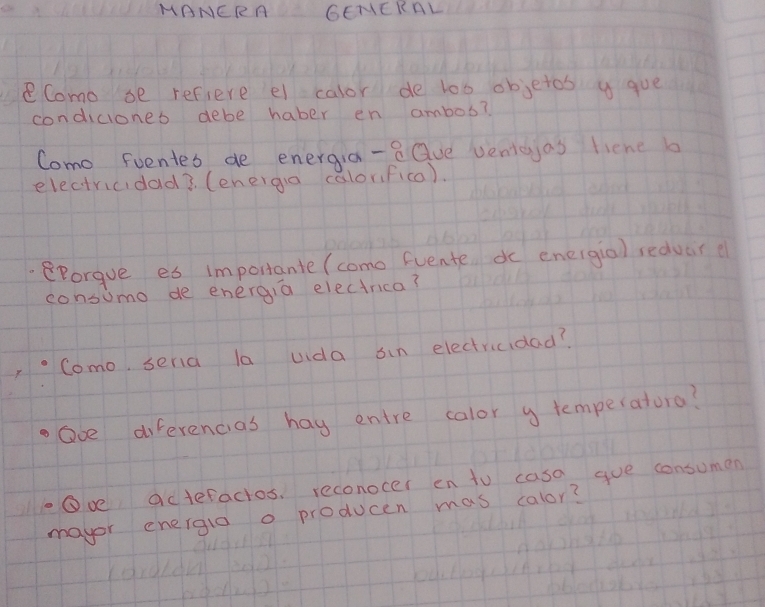 MANERA GENERAL
¿Como se refiere el calor de los objetos y que
condiciones debe haber en ambos?
Como fuentes de energia - ¿Que ventajas tiene la
electricidad? (energia calorifica).
· ¿Porque es importante (como fuente de energia) reducir el
consumo de energia electrica?
• Como seria la vida sin electricidad?
• Que diferencias hay entre calor y temperatura?
• Que actefactos. reconocer en tu casa que consumen
mayor energia o producen mas calor?